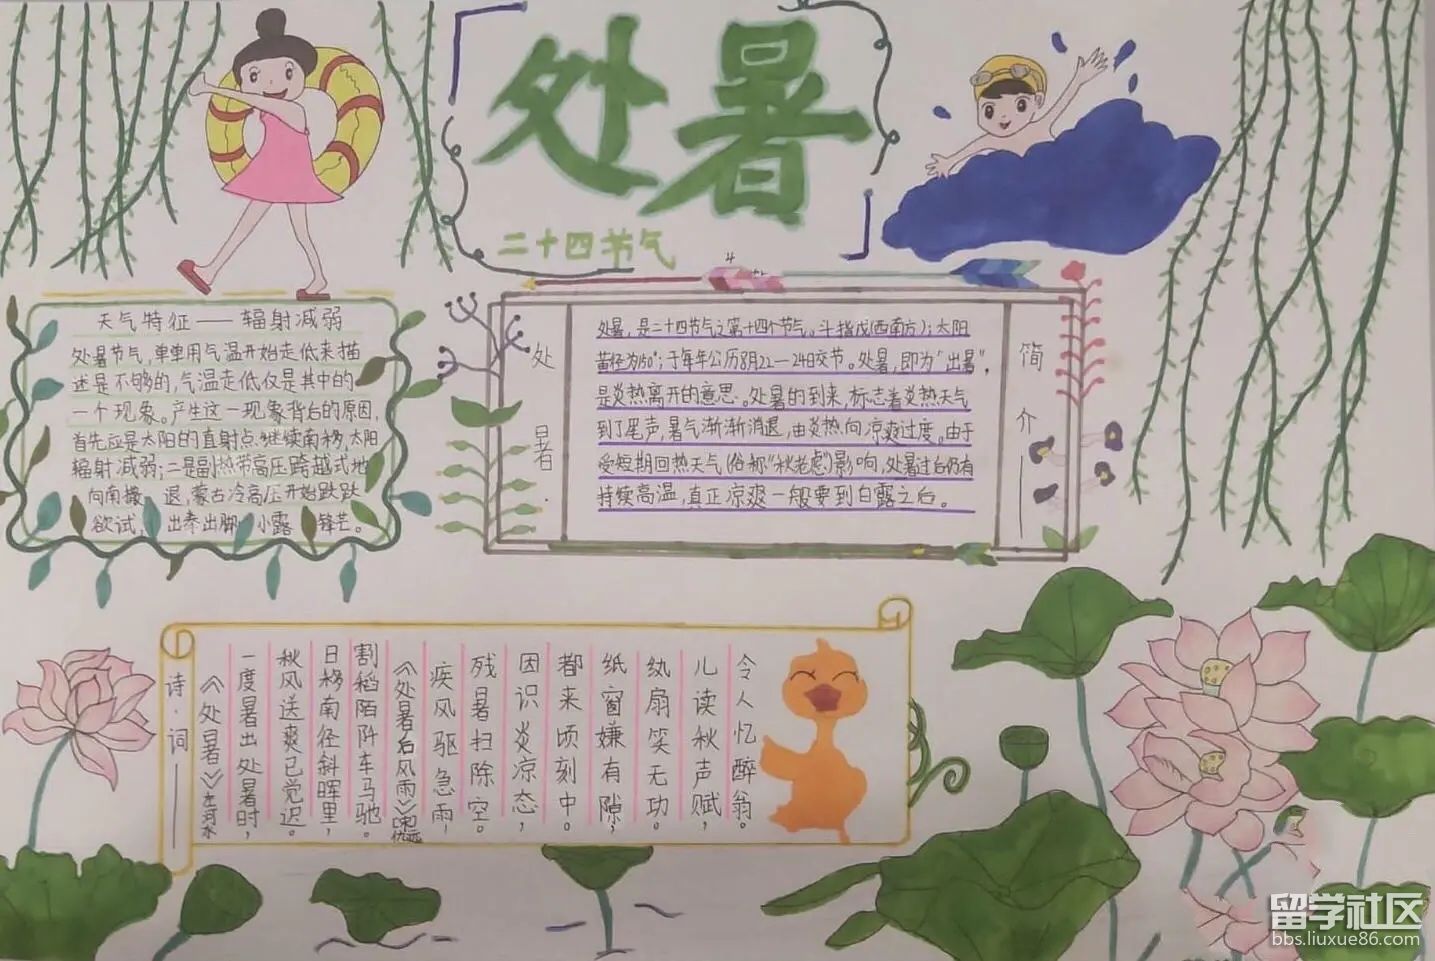 处暑
二十四节气
天气特征——辐射减弱
处暑节气,单单用气温开始走低来描
述是不够的,气温走低仅是其中的
一个现象。产生这一现象背后的原因,
首先应是太阳的直射点继续南移,太阳
辐射减弱;二是副热带高压跨越式地
向南撤退,蒙古冷高压开始跃跃
欲试,出拳出脚,小露锋芒。
处暑·简介——
处暑,是二十四节气之第十四个节气。斗指戊(西南方);太阳
黄径为150°;于每年公历8月22—24日交节。处暑,即为“出暑”,
是炎热离开的意思。处暑的到来,标志着炎热天气
到了尾声,暑气渐渐消退,由炎热向凉爽过度。由于
受短期回热天气(俗称“秋老虎”)影响,处暑过后仍有
持续高温,真正凉爽一般要到白露之后。
诗·词——
《处暑》左河水
一度暑出处暑时,
秋风送爽已觉迟。
日移南径斜晖里,
割稻陌阡车马驰。
《处暑后风雨》
疾风驱急雨,
残暑扫除空。
因识炎凉态,
都来顷刻中。
纸窗嫌有隙,
纨扇笑无功。
儿读秋声赋,
令人忆醉翁。
留学社区
bbs.liuxue86.com